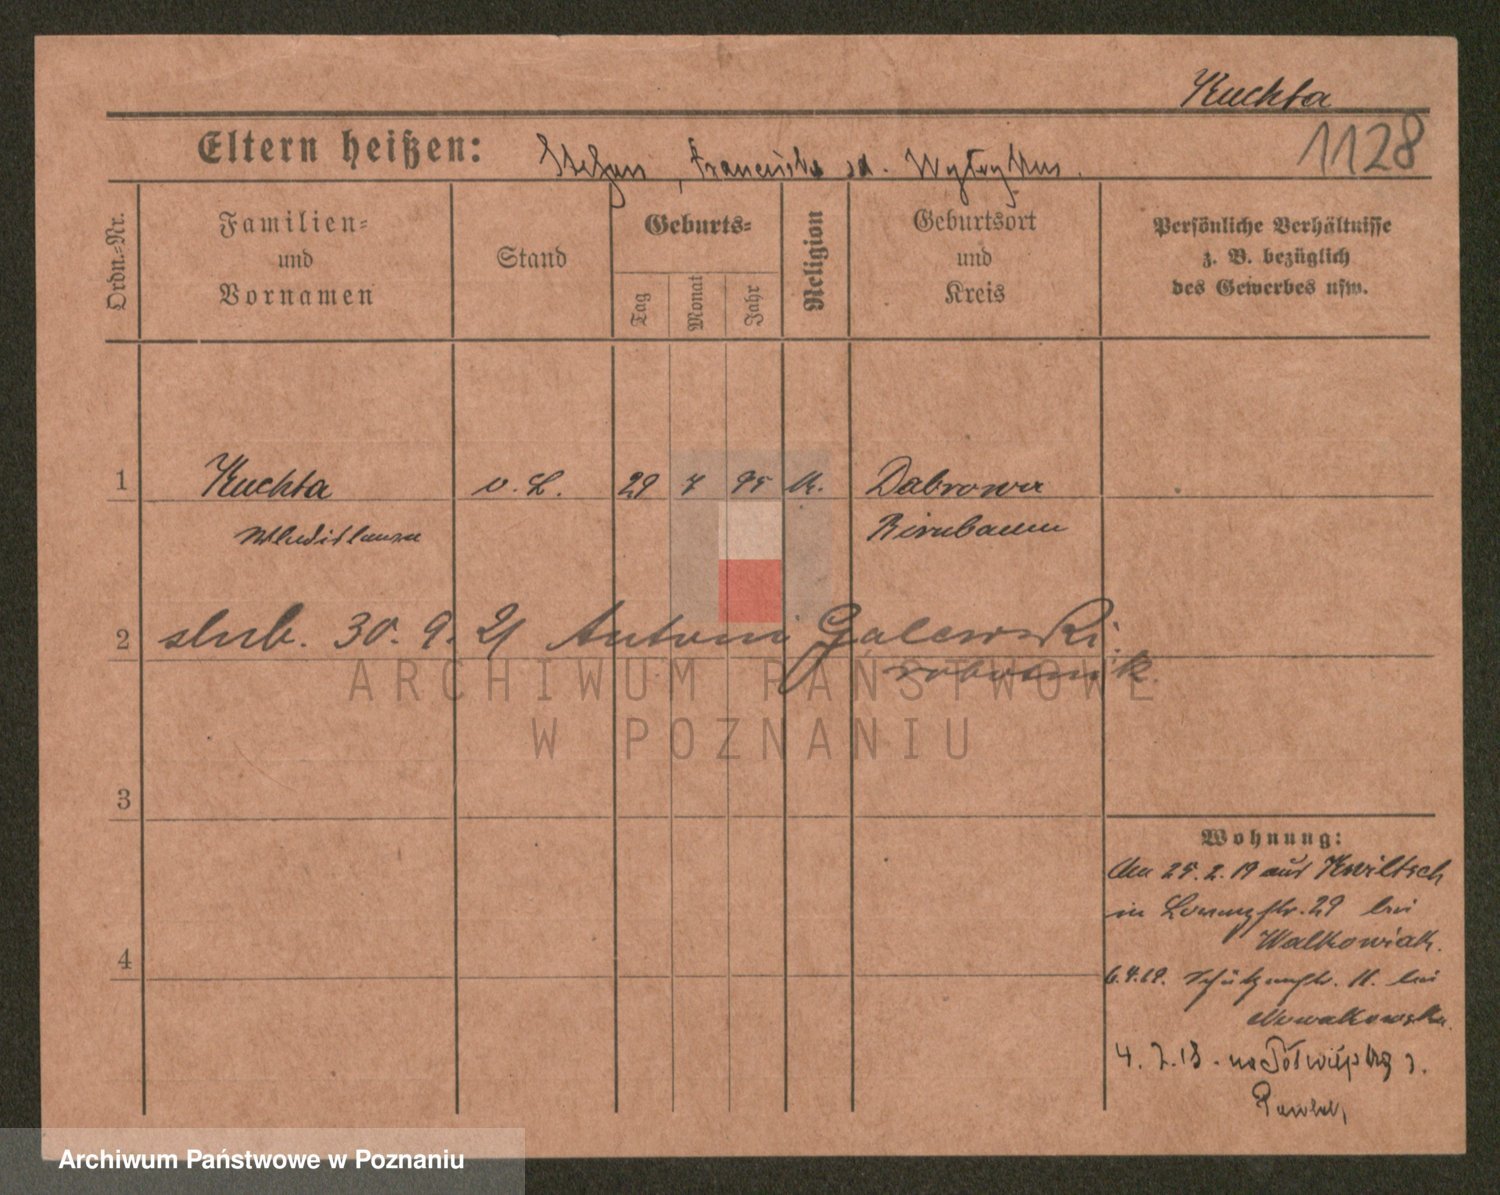 Kuchta
1128
Eltern heißen: Stefan, Franciszka
Ordn.-Nr.
Familien- und Vornamen
Stand
Geburts-
Tag
Monat
Jahr
Religion
Geburtsort und Kreis
Persönliche Verhältnisse
z. B. bezüglich
des Gewerbes usw.
1 Kuchta v. L. 29 7 95 K. Dabrowa
Wladislawa Birnbaum
2 slub. 30. 9. 21 Antoni Galewski
robotnik.
ARCHIWUM PAŃSTWOWE
W POZNANIU
3
4
Wohnung:
Am 25. 2. 19 aus Kwiltsch
in 29 bei
Walkowiak.
6.4.19. Schützenstr. 11. bei
Nowakowska.
4. 7. 19 - na Półwiejską
Archiwum Państwowe w Poznaniu